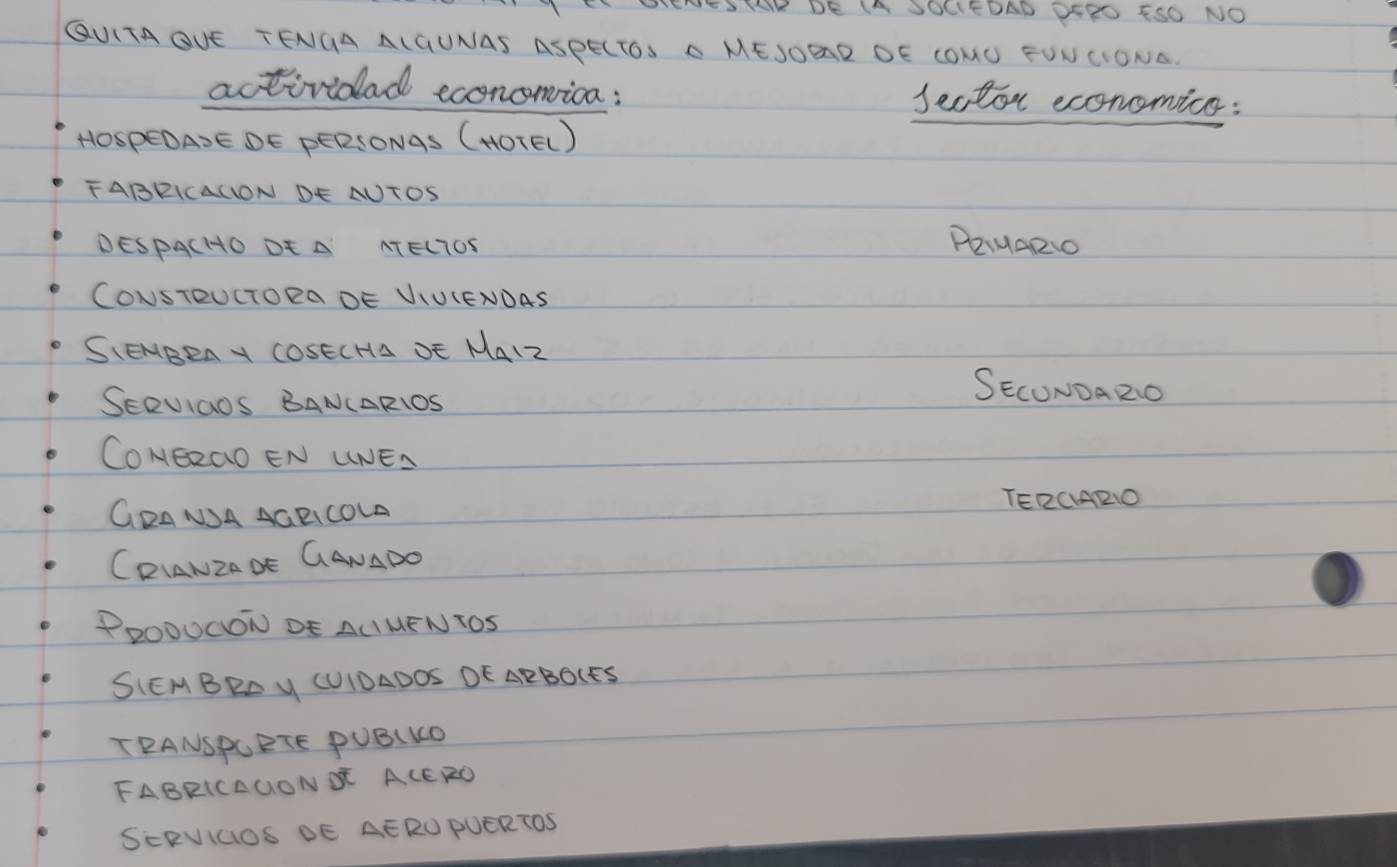 Y EL BIENESTAR DE LA SOCIEDAD PERO ESO NO
QUITA QUE TENGA ALGUNAS ASPECTOS A MEJORAR DE COMO FUNCIONA.
actividad economica: sector economico:
• HOSPEDAJE DE PERSONAS (HOTEL)
• FABRICACION DE AUTOS
• DESPACHO DE A TECTOS PRIMARIO
• CONSTRUCTORA DE VIVIENDAS
• SIEMBRA Y COSECHA DE MAIZ
• SERVICIOS BANCARIOS SECUNDARIO
• COMERCIO EN LINEA
• GRANJA AGRICOLA TERCIARIO
• CRIANZA DE GANADO
• PRODUCIÓN DE ALIMENTOS
• SIEMBRA Y CUIDADOS DE ARBOLES
• TRANSPORTE PUBLICO
• FABRICACION DE ACERO
• SERVICIOS DE AEROPUERTOS